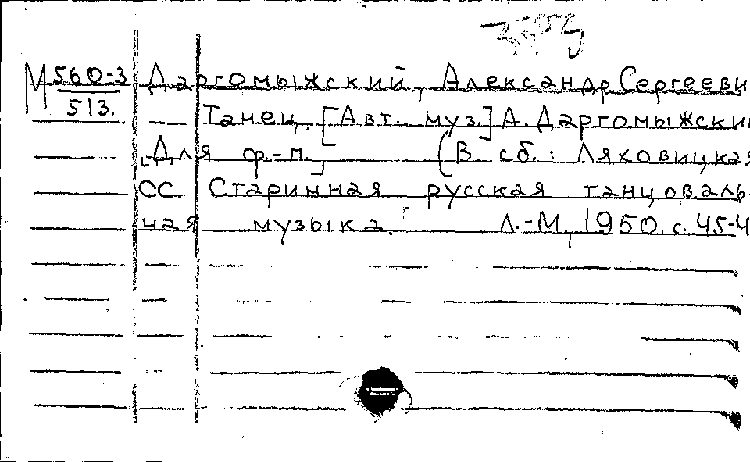 М 560-3 Даргомыжский, Александр Сергееви
513. — Танец. [Авт. муз.] А. Даргомыжский
[Для ф-п.] (В сб.: Ляховицкая
СС Старинная русская танцоваль-
ная музыка. Л.-М., 1950. с. 45-4